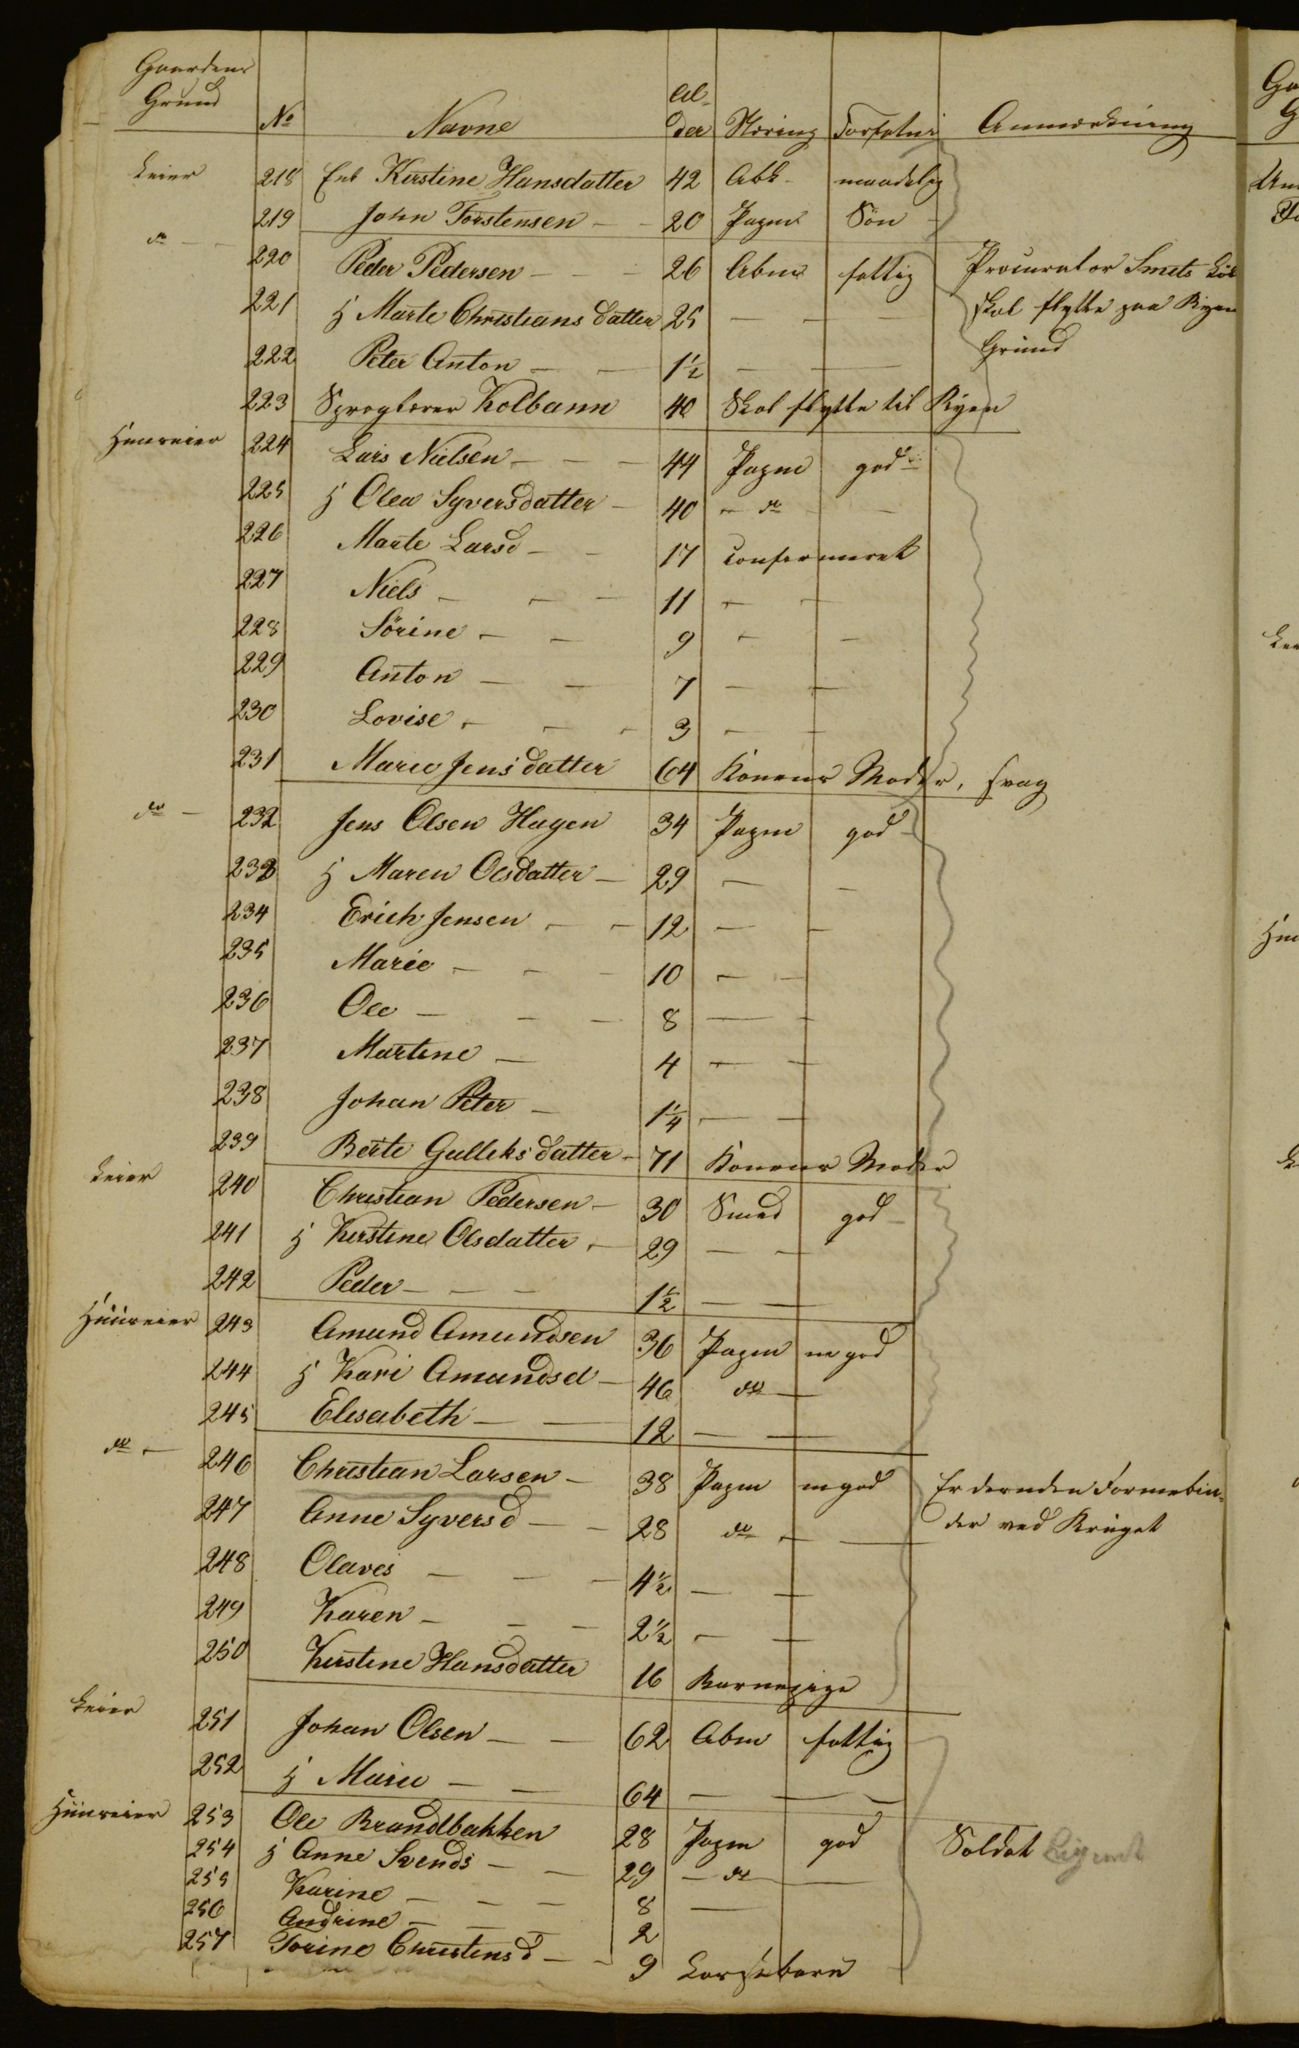 Gaardens Grund No Navne Alder Næring Forfatni Anmærkning
Leier 218 Enk Kirstine Hansdatter 42 Abk maadelig
219 John Torstensen - - 20 Papm Sön
do - - 220 Peder Pedersen - - - 26 Abm fattig Procurator Smets
221 H Marte Christians datter 25 - - - skal flytte paa Ryen
222 Peter Anton - - 1½ - - Grund
223 Sproglærer Kolbann 40 Skal flytte til Ryen
Huuseier 224 Lars Nielsen - - - 44 Papm god
225 H Olea Syversdatter - 40 - do - -
226 Marte Larsd - - 17 confermeret
227 Niels - - - 11 - -
228 Sörine - - 9 - -
229 Anton - - 7 - -
230 Lovise - - - 3 - -
231 Marie Jens datter 64 Konens Moder, svag
do - 232 Jens Olsen Hagen 34 Papm god -
233 H Maren Olsdatter - 29 - -
234 Erich Jensen - - 12 - -
235 Marie - - - 10 - -
236 Ole - - - 8 - -
237 Martine - 4 - -
238 Johan Peter - 1¼ - -
239 Berte Gulleks datter - 71 Konens Moder
Leier 240 Christian Pedersen - 30 Smed god -
241 H Kirstine Olsdatter - 29 - -
242 Peder - - - 1½ - -
Huuseier 243 Amund Amundsen 36 Papm m god
244 H Kari Amundsd - 46 do -
245 Elisabeth - - 12 - -
do - 246 Christian Larsen - 38 Papm m god Er der nden Formebin-
247 Anne Syversd - - 28 do - - der ved Bruget
248 Olaves - - - 4½ - -
249 Karen - - - 2½ - -
250 Kirstine Hansdatter 16 Barnepige
Leier 251 Johan Olsen - - 62 Abm fattig
252 H Marie - - 64 - - -
Huuseier 253 Ole Brandbakken 28 Papm god Soldat
254 H Anne Svends - - 29 - do -
255 Karine - - - 8 -
256 Andrine - - - 2
257 Torine Christensd - - 9 Lægsebarn